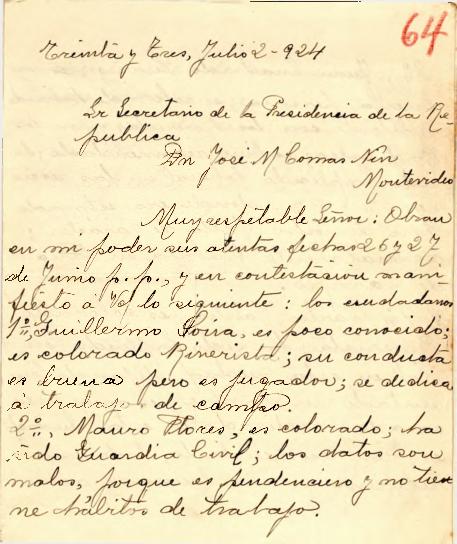 64
Treinta y Tres, Julio 2-924
Sr Secretario de la Presidencia de la Re-
publica
Dn José M Comas Nin
Montevideo
Muy respetable Señor: Obran
en mi poder sus atentas fechas 26 y 27
de Junio p. p., y en contestación mani-
fiesto á Vd lo siguiente: los ciudadanos
1º Guillermo Soira, es poco conocido;
es colorado Riverista; su conducta
es buena pero es jugador; se dedica
á trabajos de campo.
2º, Mauro Flores, es colorado; ha
sido Guardia Civil; los datos son
malos, porque es pendenciero y no tien
ne hábitos de trabajo.